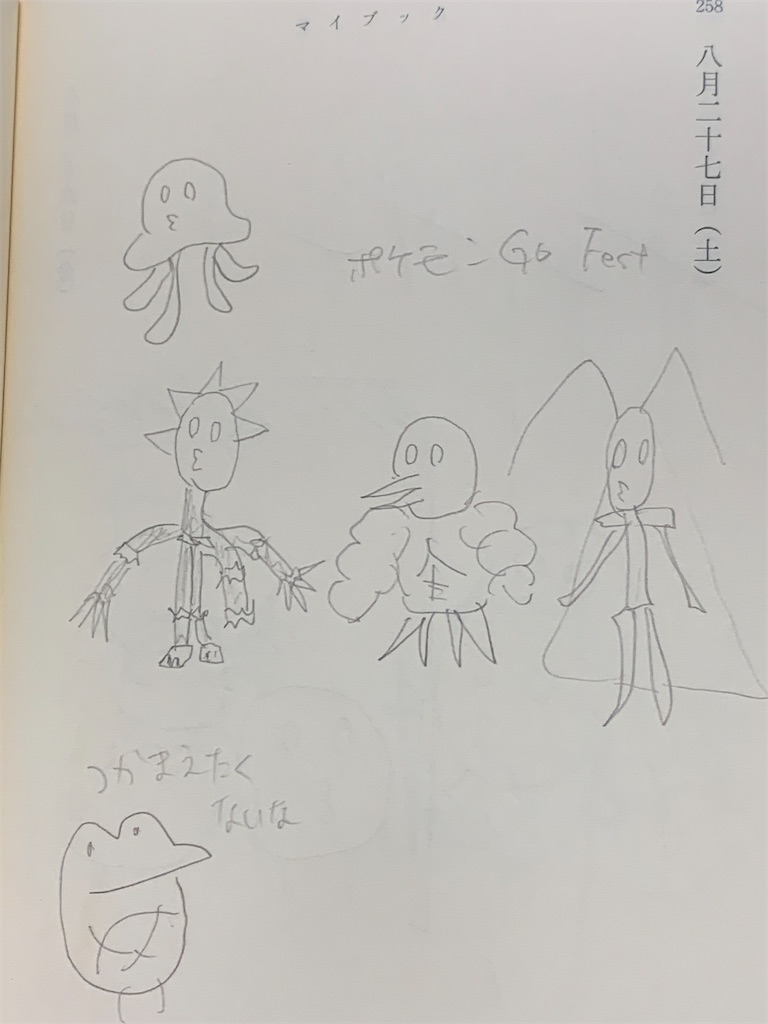 マイブック
258
八月二十七日(土)
ポケモンGo Fest
つかまえたく
ないな